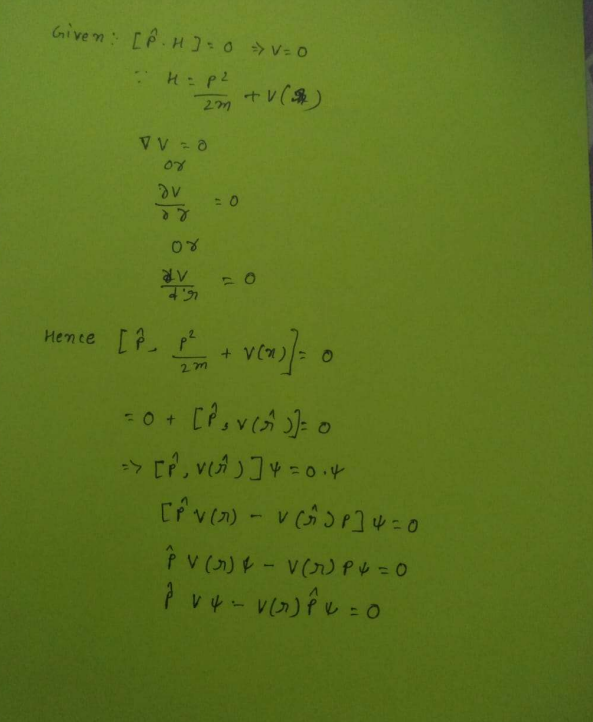 Given: [p̂. H] = 0 ⇒ V = 0
∵ H = p²/2m + V( )
∇V = 0
or
∂V/∂r = 0
or
dV/dr = 0
Hence [p̂, p²/2m + V(r)] = 0
= 0 + [p̂, V(r̂)] = 0
=> [p̂, V(r̂)]ψ = 0.ψ
[p̂ V(r) - V(r̂)p]ψ = 0
p̂ V(r)ψ - V(r)pψ = 0
p̂ Vψ - V(r)p̂ψ = 0